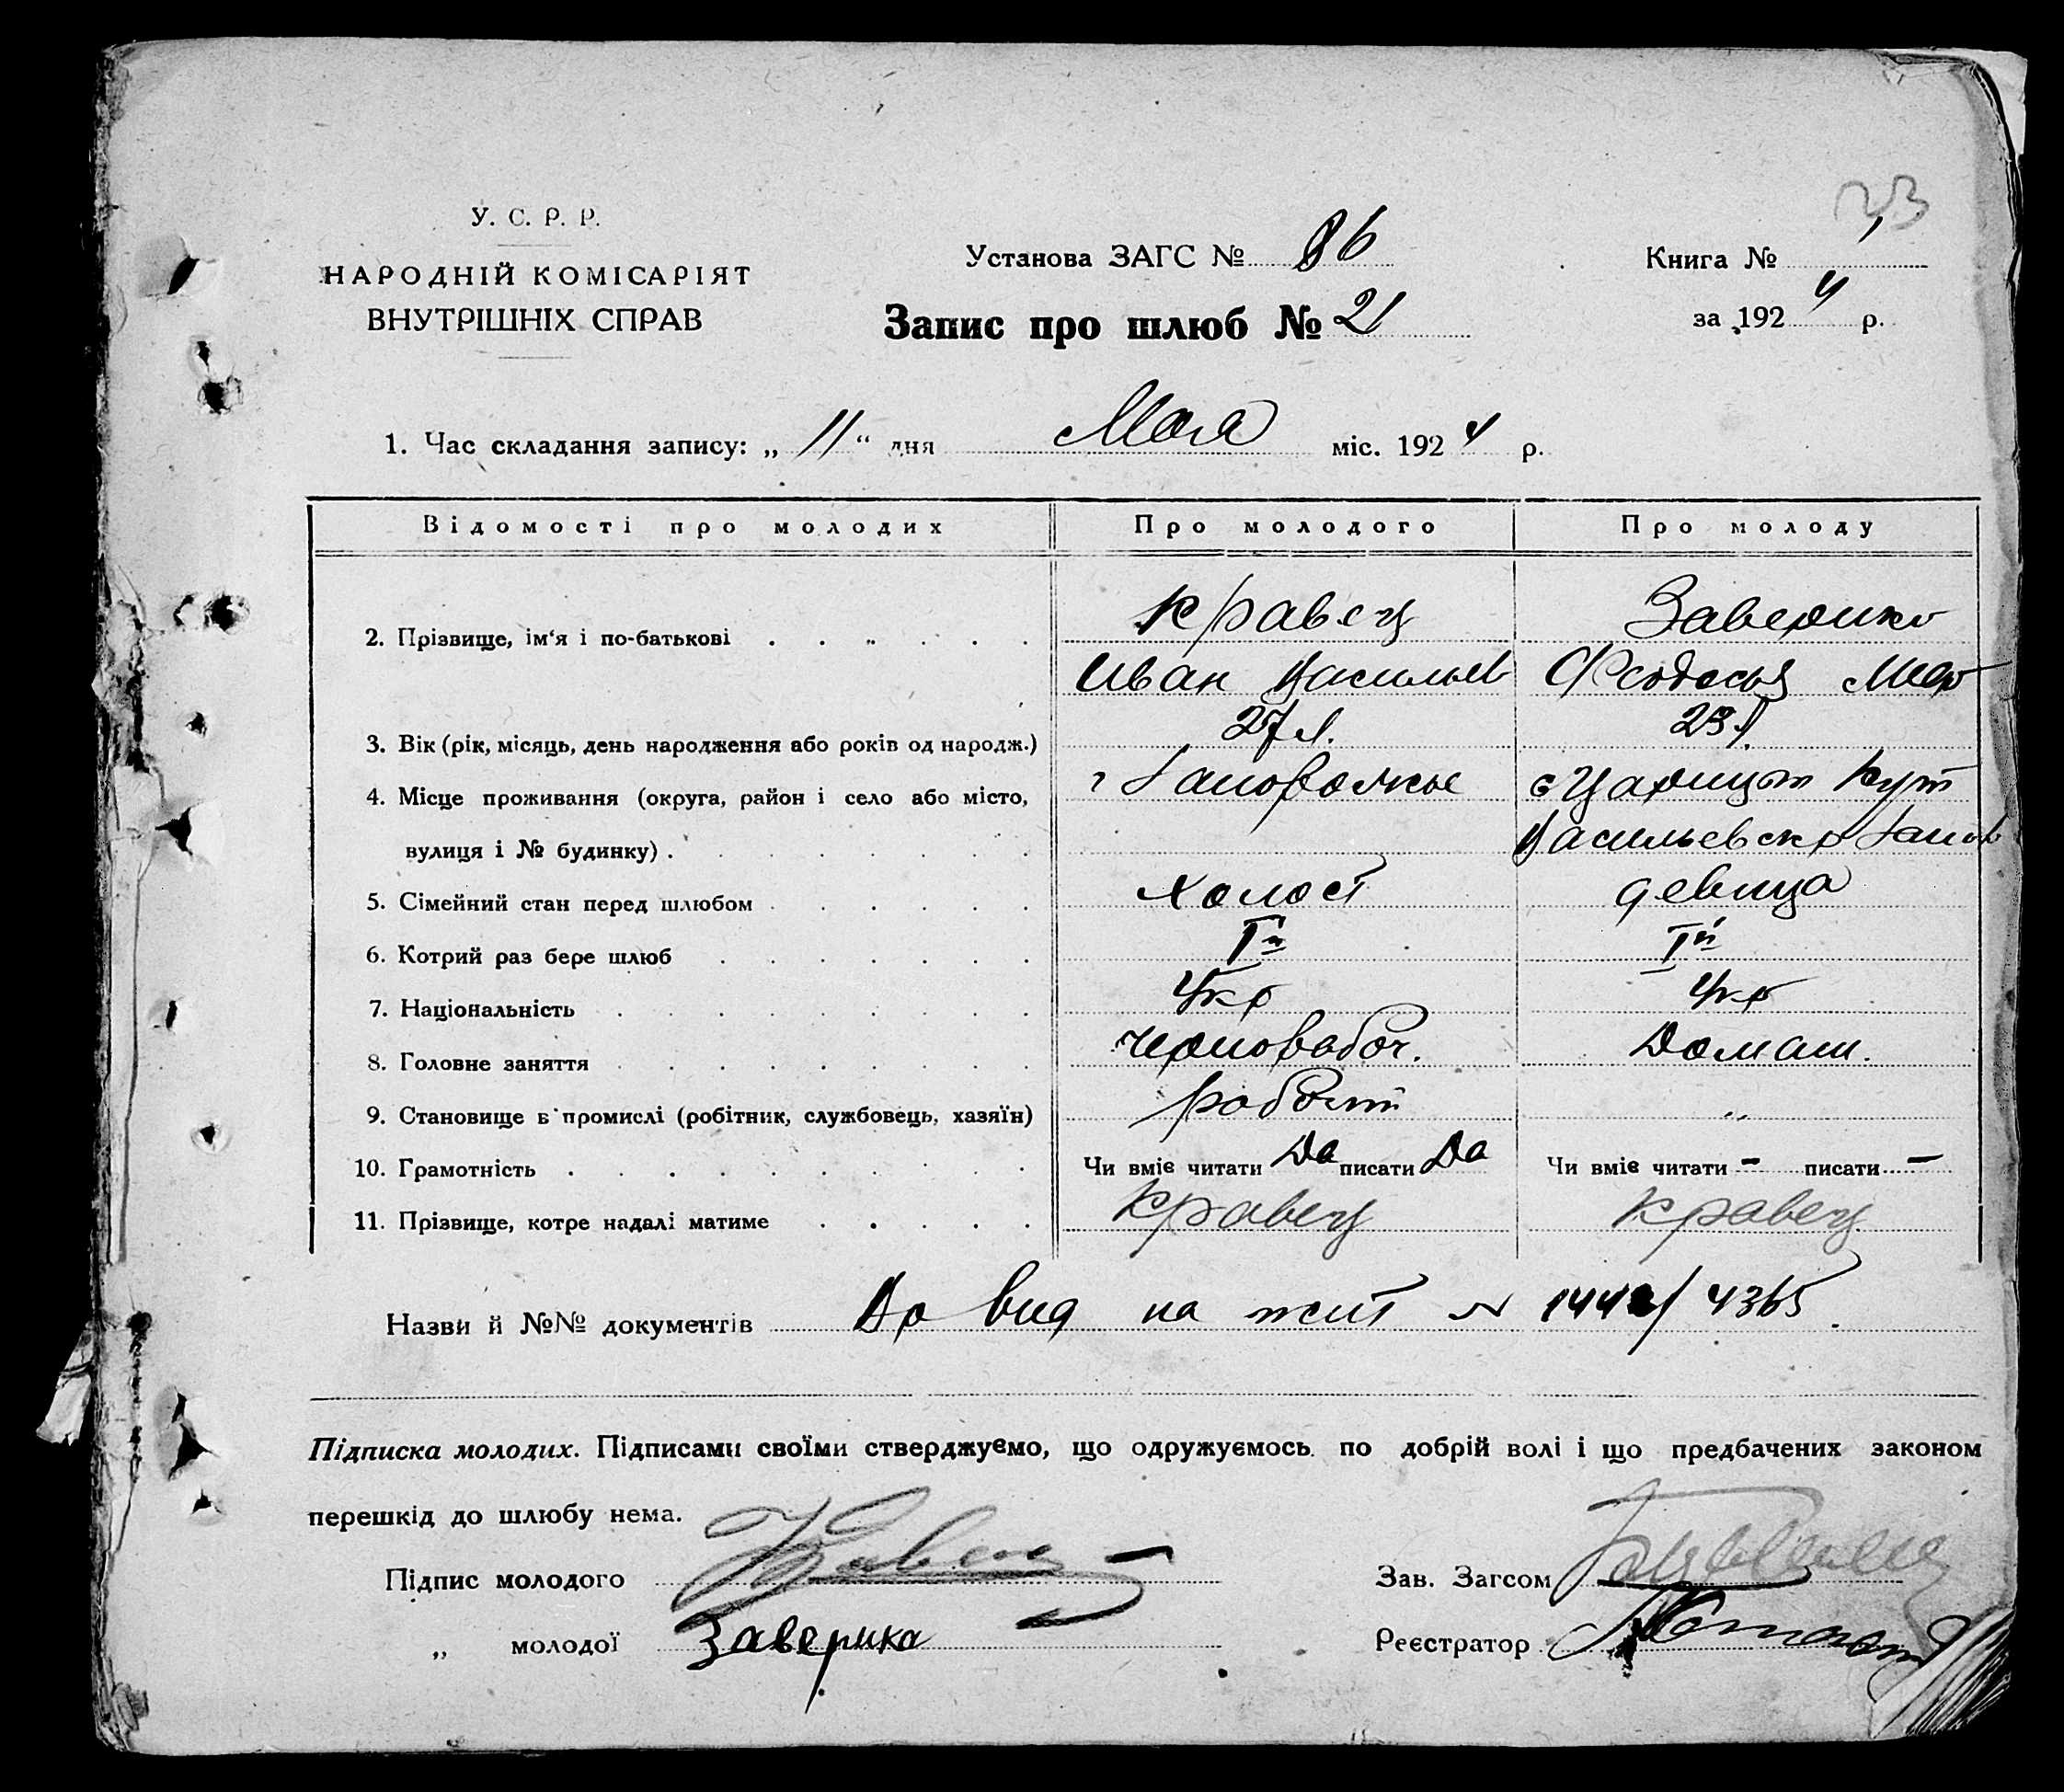 23
У. С. Р. Р.
НАРОДНІЙ КОМІСАРІЯТ
ВНУТРІШНІХ СПРАВ
Установа ЗАГС № 86
Книга №
Запис про шлюб № 21
за 1924 р.
1. Час складання запису: „ 11 “ дня Мая міс. 1924 р.
Відомості про молодих Про молодого Про молоду
2. Прізвище, ім‘я і по-батькові Кравец Заверико
Иван Васильев Феодосья
3. Вік (рік, місяць, день народження або років од народж.) 27 л. 23 л.
4. Місце проживання (округа, район і село або місто, г Запорожье с Царицын Кут
вулиця і № будинку) . Васильевско Запор
5. Сімейний стан перед шлюбом холост девица
6. Котрий раз бере шлюб Iй Iй
7. Національність Укр Укр
8. Головне заняття чернорабоч. Домаш.
9. Становище в промислі (робітник, службовець, хазяїн) работн „
10. Грамотність Чи вміє читати Да писати Да Чи вміє читати - писати -
11. Прізвище, котре надалі матиме Кравец Кравец
Назви й №№ документів вид на жит N 1442/4365.
Підписка молодих. Підписами своїми стверджуємо, що одружуємось по добрій волі і що предбачених законом
перешкід до шлюбу нема.
Підпис молодого Кравец Зав. Загсом
„ молодої Заверика Реєстратор